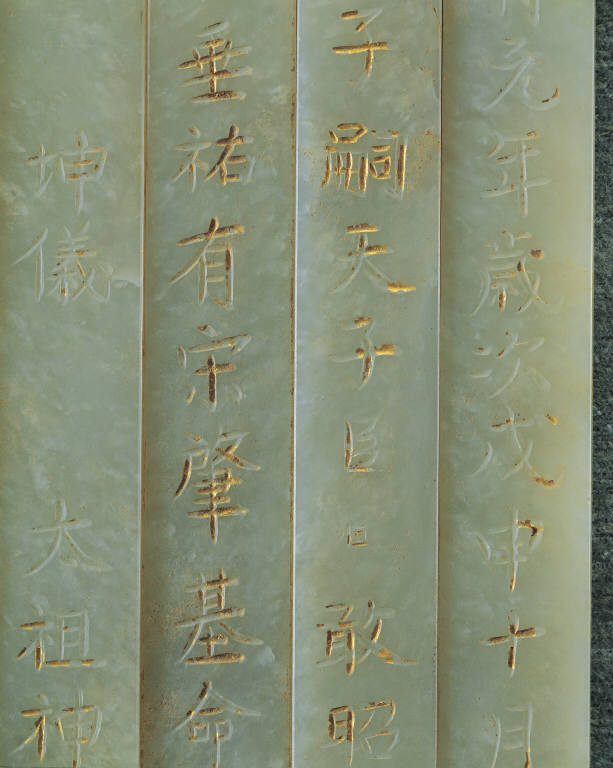 元年歲次戊申十月
子嗣天子臣敢昭
垂祐有宋肇基命
坤儀 太祖神